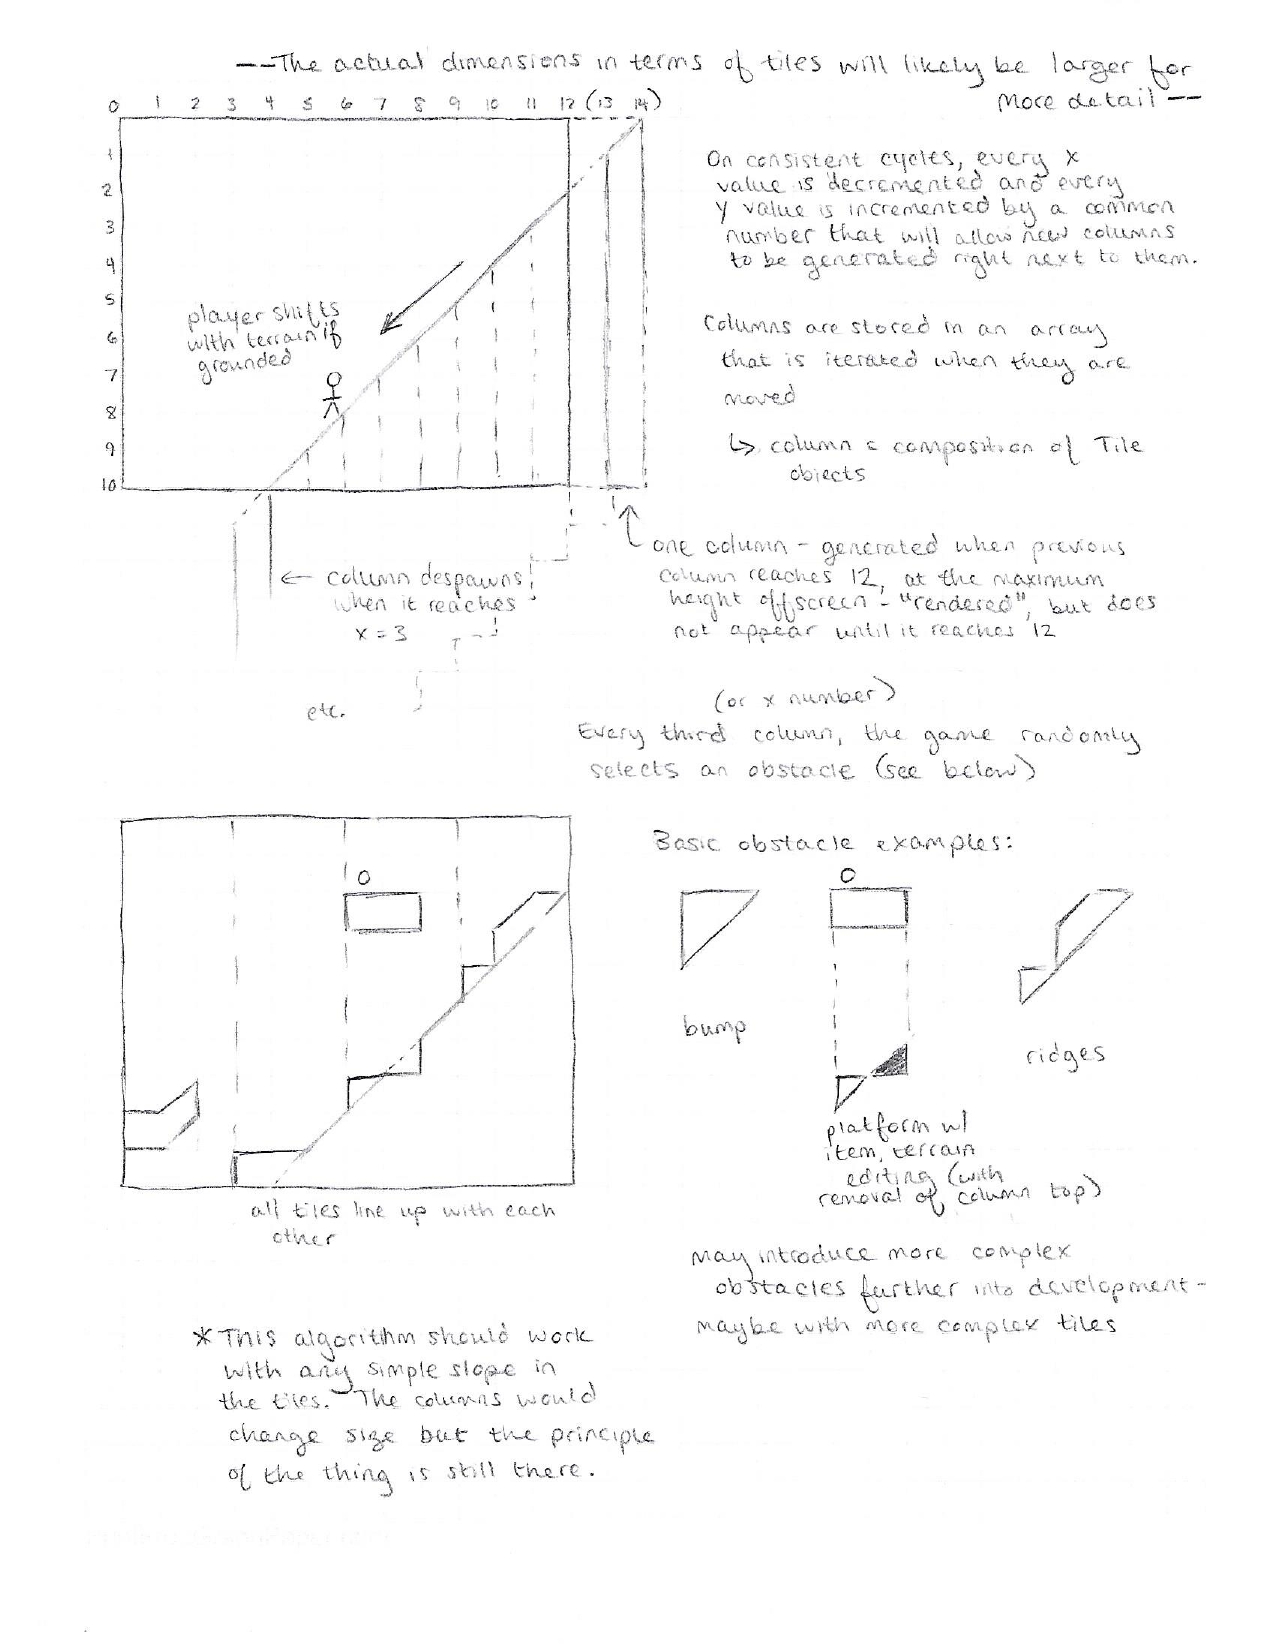 --The actual dimensions in terms of tiles will likely be larger for
more detail--
0 1 2 3 4 5 6 7 8 9 10 11 12 (13 14)
1
2
3
4
5
6
7
8
9
10
On consistent cycles, every x
value is decremented and every
y value is incremented by a common
number that will allow new columns
to be generated right next to them.
player shifts
with terrain if
grounded
Columns are stored in an array
that is iterated when they are
moved
↳ column = composition of Tile
objects
one column - generated when previous
column reaches 12, at the maximum
height offscreen - "rendered", but does
not appear until it reaches 12
← column despawns
when it reaches
x = 3
etc.
(or x number)
Every third column, the game randomly
selects an obstacle (see below)
Basic obstacle examples:
bump
platform w/
item, terrain
editing (with
removal of column top)
ridges
all tiles line up with each
other
May introduce more complex
obstacles further into development -
maybe with more complex tiles
* This algorithm should work
with any simple slope in
the tiles. The columns would
change size but the principle
of the thing is still there.